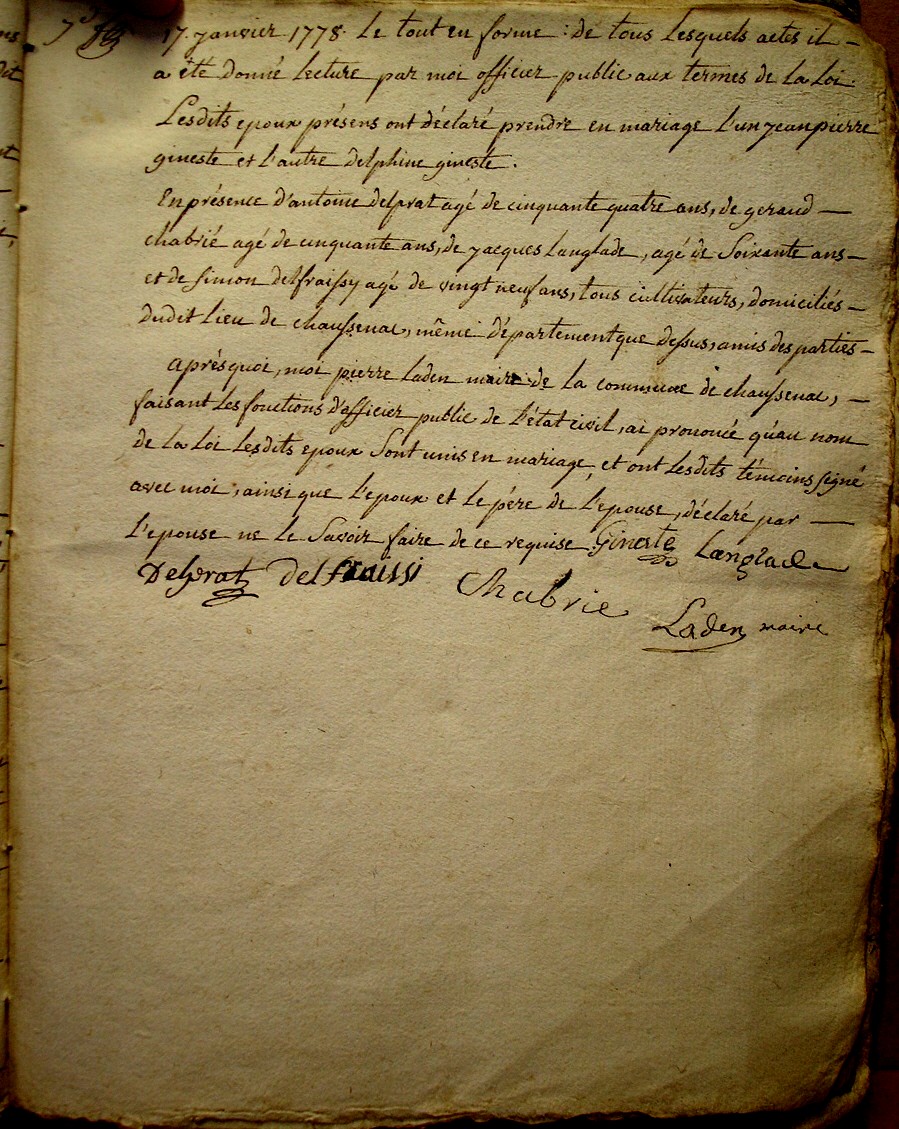 17. janvier 1778. Le tout en forme : de tous Lesquels actes il -
a été donné Lecture par moi officier public aux termes de La Loi.
Lesdits epoux présens ont déclaré prendre en mariage L'un jean pierre
gineste et L'autre delphine gineste.
En présence d'antoine delprat agé de cinquante quatre ans, de geraud —
chabrié agé de cinquante ans, de jacques Langlade, agé de Soixante ans -
et de Simon delfraissy agé de vingt neuf ans, tous cultivateurs, domiciliés -
dudit Lieu de chaussenac, même département que dessus, amis des parties -
après quoi, moi pierre Laden maire de La commune de chaussenac, —
faisant Les fonctions d'officier public de L'état civil, ai prononcé qu'au nom
de La Loi Lesdits epoux Sont unis en mariage, et ont Lesdits témoins signé
avec moi, ainsi que L'epoux et Le père de L'epouse, déclaré par —
L'epouse ne Le Savoir faire de ce requise. Gineste Langlade
Delprat Delfraissi Chabrie
Laden maire